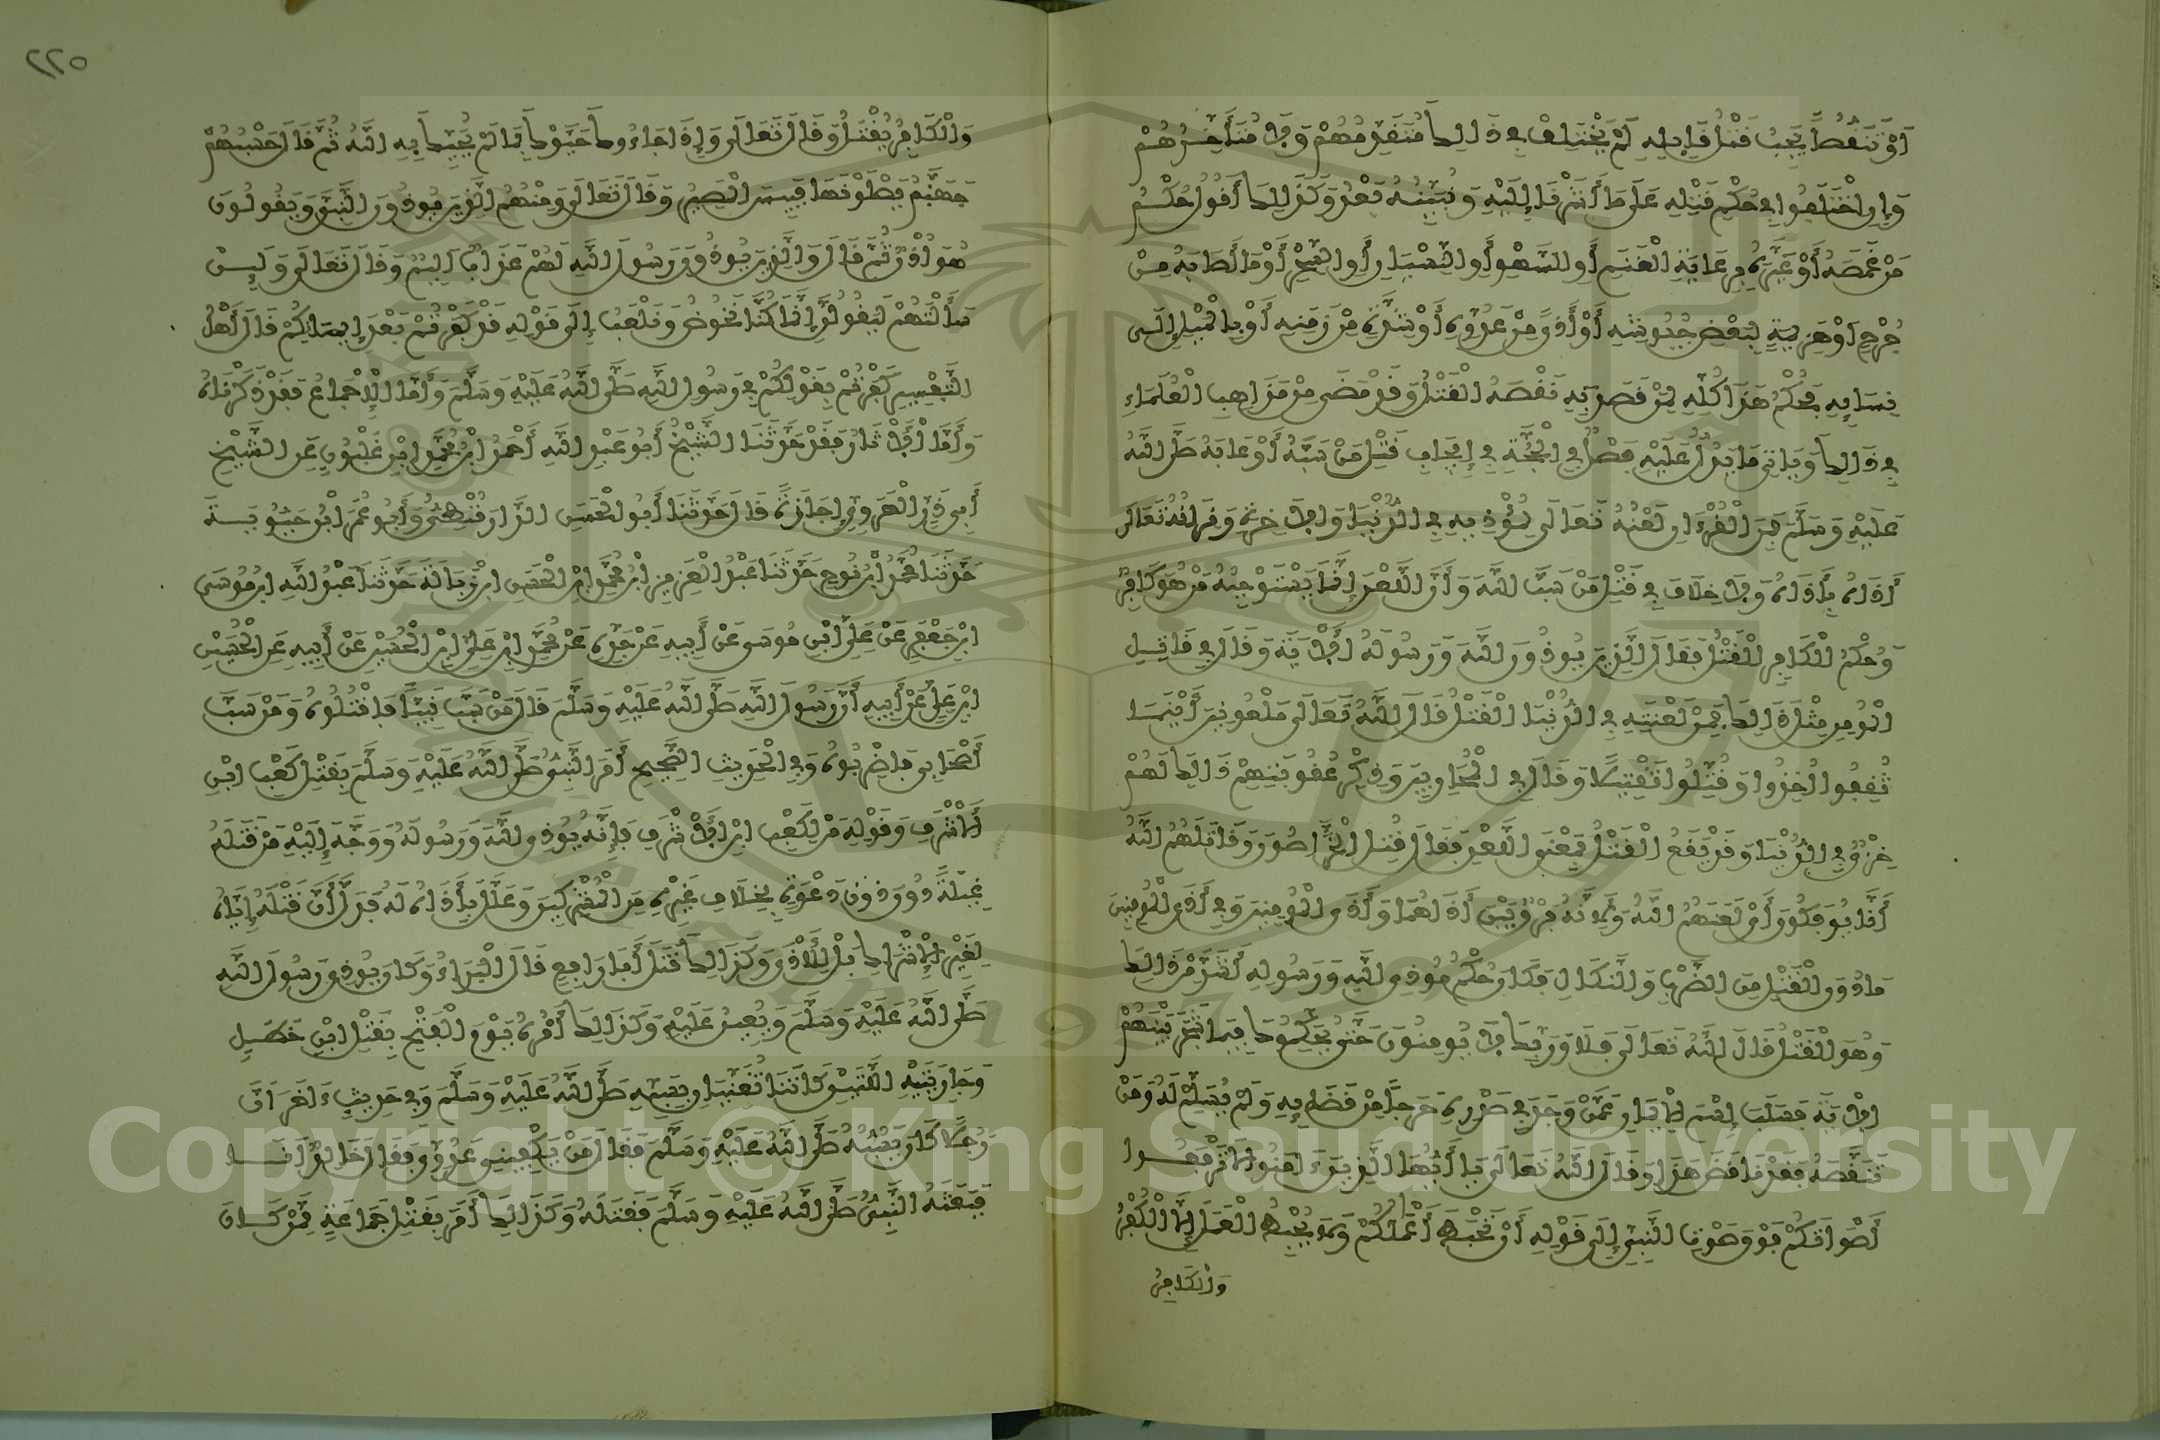 أو تنقصا يجب قتل قايله لم يختلف في ذلك متقدمهم ولا متأخرهم
وإن اختلفوا في حكم قتله على ما أشرنا إليه ونبينه بعد وكذلك أقول حكم
من غمصه أو عيره برعاية الغنم أو السهو أو النسيان أو السحر أو ما أصابه من
جرح أو هزيمة لبعض جيوشه أو أذى من عدوه أو شدة من زمنه أو بالميل إلى
نسايه فحكم هذا كله لمن قصد به نقصه القتل وقد مضى من مذاهب العلماء
في ذلك وياتي ما يدل عليه فصل في الحجة في إيجاب قتل من سبه أو عابه صلى الله
عليه وسلم فمن القرءان لعنه تعالى لموذيه في الدنيا والاخرة وقرانه تعالى
أذاه بأذاه ولا خلاف في قتل من سب الله وأن اللعن إنما يستوجبه من هو كافر
وحكم الكافر القتل فقال الذين يوذون الله ورسوله الاية وقال في قاتل
المومن مثل ذلك فمن لعنته في الدنيا القتل قال الله تعالى ملعونين أينما
ثقفوا أخذوا وقتلوا تقتيلا وقال في المحاربين وذكر عقوبتهم ذلك لهم
خزي في الدنيا وقد يقع القتل بمعنى اللعن فقال قتل الخراصون وقاتلهم الله
أنى يوفكون أي لعنهم الله ولأنه فرق بين أذاهما وأذى المومنين وفي أذى المومنين
ما دون القتل من الضرب والنكال فكان حكم موذي الله ورسوله أشد من ذلك
وهو القتل قال الله تعالى فلا وربك لا يومنون حتى يحكموك فيما شجر بينهم
الاية فسلب اسم الإيمان عمن وجد في صدره حرجا من قضايه ولم يسلم له ومن
تنقصه فقد ناقض هذا وقال الله تعالى يا أيها الذين ءامنوا لا ترفعوا
أصواتكم فوق صوت النبي إلى قوله أن تحبط أعمالكم ولا يحبط العمل إلا الكفر
والكافر
٢٢٥
والكافر يقتل وقال تعالى وإذا جاءوك حيوك بما لم يحيك به الله ثم قال حسبهم
جهنم يصلونها فبيس المصير وقال تعالى ومنهم الذين يوذون النبي ويقولون
هو أذن ثم قال والذين يوذون رسول الله لهم عذاب اليم وقال تعالى ولين
سألتهم ليقولن إنما كنا نخوض ونلعب إلى قوله قد كفرتم بعد إيمانكم قال أهل
التفسير كفرتم بقولكم في رسول الله صلى الله عليه وسلم وأما الإجماع فقد ذكرناه
وأما الأثار فقد حدثنا الشيخ أبو عبد الله أحمد ابن محمد ابن غلبون عن الشيخ
أبي ذر الهروي إجازة قال حدثنا أبو الحسن الدارقطني وأبو عمر ابن حيوية
حدثنا محمد ابن نوح حدثنا عبد العزيز ابن محمد ابن الحسن ابن زبالة حدثنا عبد الله ابن موسى
ابن جعفر عن علي ابن موسى عن أبيه عن جده عن محمد ابن علي ابن الحسين عن أبيه عن الحسين
ابن علي عن أبيه أن رسول الله صلى الله عليه وسلم قال من سب نبيا فاقتلوه ومن سب
أصحابي فاضربوه وفي الحديث الصحيح أمر النبي صلى الله عليه وسلم بقتل كعب ابن
الأشرف وقوله من لكعب ابن الأشرف فإنه يوذي الله ورسوله ووجه إليه من قتله
غيلة دون دعوة بخلاف غيره من المشركين وعلل بأذاه له فدل أن قتله إياه
لغير الإشراك بل للأذى وكذلك قتل أبا رافع قال البراء وكان يوذي رسول الله
صلى الله عليه وسلم ويعين عليه وكذلك أمره يوم الفتح بقتل ابن خطل
وجاريتيه اللتين كانتا تغنيان بسبه صلى الله عليه وسلم وفي حديث ءاخر أن
رجلا كان يسبه صلى الله عليه وسلم فقال من يكفيني عدوي فقال خالد أنا
فبعثه النبي صلى الله عليه وسلم فقتله وكذلك أمر بقتل جماعة ممن كان
Copyright © King Saud University